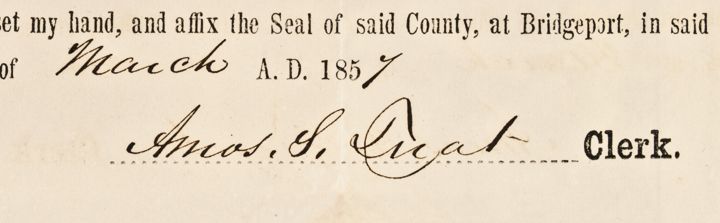 set my hand, and affix the Seal of said County, at Bridgeport, in said
of March A. D. 1857
Amos. S. Treat Clerk.